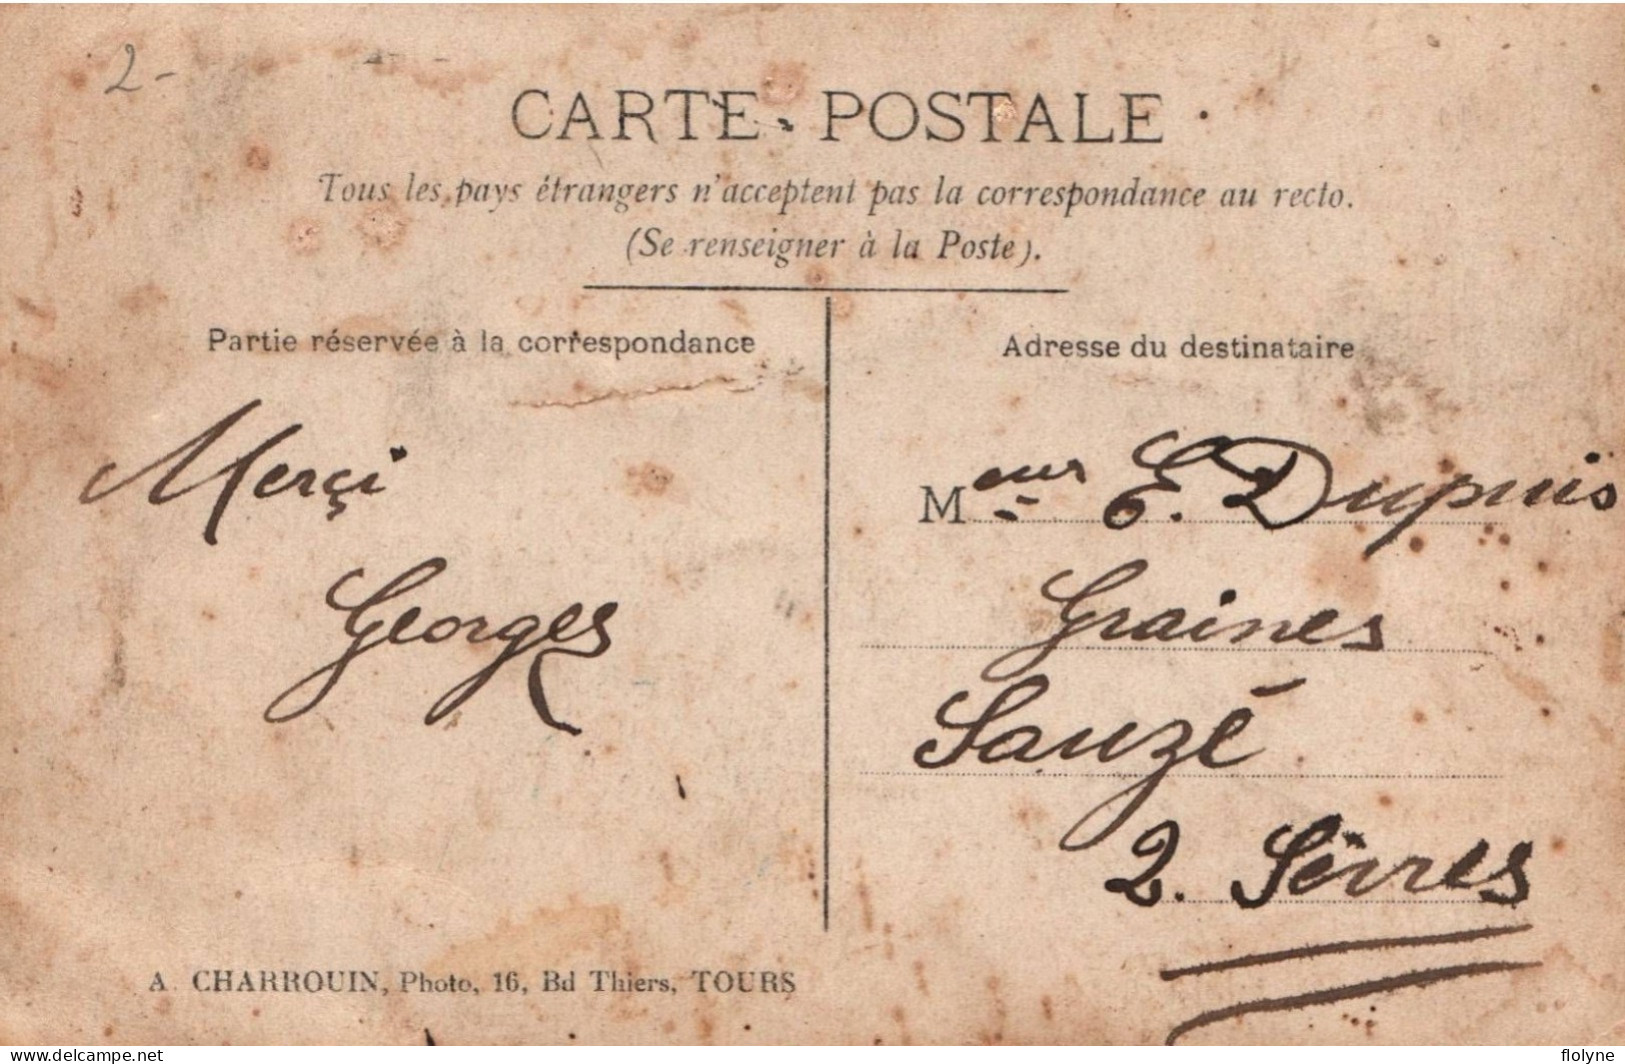 2-
CARTE POSTALE
Tous les pays étrangers n'acceptent pas la correspondance au recto.
(Se renseigner à la Poste).
Partie réservée à la correspondance
Merçi
Georges
A. CHARROUIN, Photo, 16, Bd Thiers, TOURS
Adresse du destinataire
Meur E. Dupuis
Graines
Sauzé
2. Sèvres
delcampe.net
flolyne